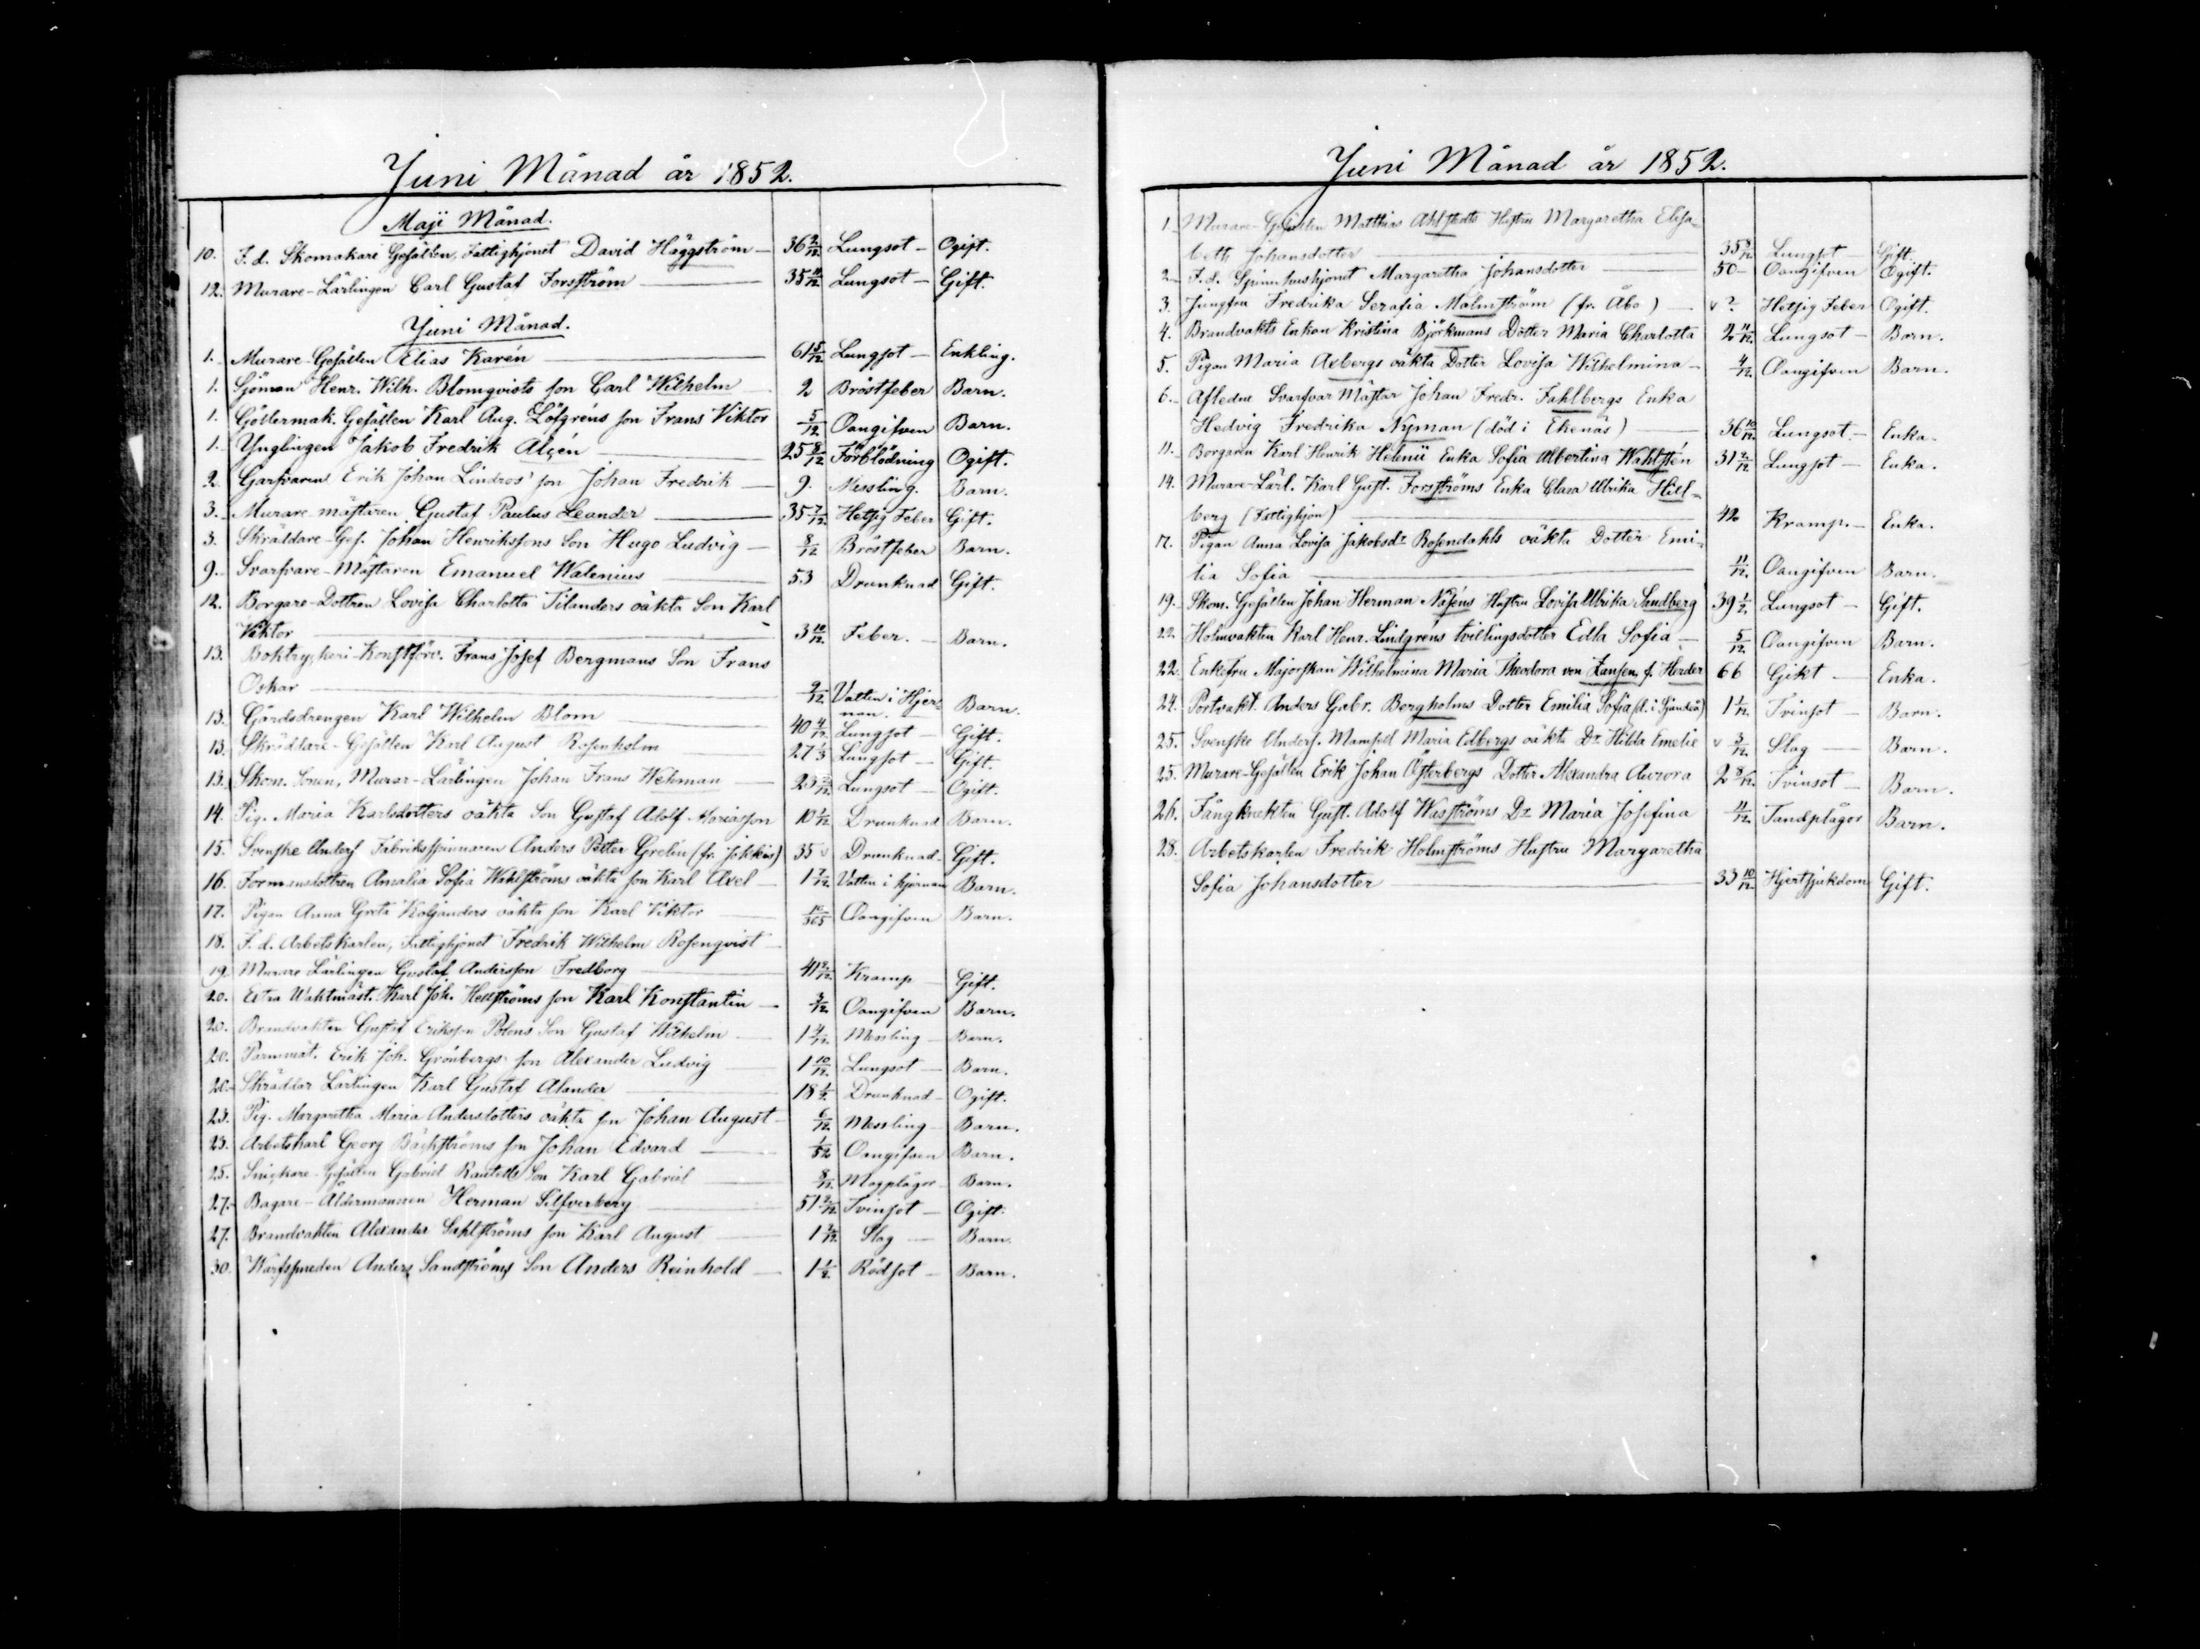 Juni Månad år 1852.
Maji Månad.
10. F. d. Skomakare Gesällen, Fattighjonet David Häggström — 36 9/12 Lungsot — Ogift.
12. Murare-Lärlingen Carl Gustaf Forsström — 35 11/12 Lungsot — Gift.
Juni Månad.
1. Murare-Gesällen Elias Karén — 61 5/12 Lungsot — Enkling.
1. Sjöman Henr. Wilh. Blomqvists son Carl Wilhelm — 2 Bröstfeber Barn.
1. Göllermak. Gesällen Karl Aug. Löfgréns son Frans Viktor 5/12 Oangifven Barn.
1. Ynglingen Jakob Fredrik Alçén — 25 8/12 Förblödning Ogift.
2. Garfvaren Erik Johan Lindros' son Johan Fredrik — 9. Messling. Barn.
3. Murare-mästaren Gustaf Paulus Leander — 35 7/12 Hetsig Feber Gift.
3. Skräddare-Ges. Johan Henrikssons Son Hugo Ludvig — 8/12 Bröstfeber Barn.
9. Svarfvare-Mästaren Emanuel Walenius — 53 Drunknad Gift.
12. Borgare-Dottren Lovisa Charlotta Tilanders oäkta Son Karl
Viktor — 3 10/12 Feber. — Barn.
13. Boktryckeri-Konstförv. Frans Josef Bergmans Son Frans
Oskar — 9/12 Vatten i Hjer-
nan. Barn.
13. Gårdsdrengen Karl Wilhelm Blom — 40 4/12 Lungsot — Gift.
13. Skräddare-Gesällen Karl August Rosenholm 27 1/3 Lungsot — Gift.
13. Skom. Sonen, Murar-Lärlingen Johan Frans Wehman — 23 7/12 Lungsot — Ogift.
14. Pig. Maria Karlsdotters oäkta Son Gustaf Adolf Mariasson 10 1/12 Drunknad Barn.
15. Svenske Unders. Fabriksspinnaren Anders Petter Grelin (fr. Jokkis) 35 v Drunknad — Gift.
16. Formansdottren Amalia Sofia Wahlströms oäkta son Karl Axel — 1 7/12 Vatten i hjernan Barn.
17. Pigan Anna Greta Koljanders oäkta son Karl Viktor — /365 Oangifven Barn.
18. F. d. Arbetskarlen, Fattighjonet Fredrik Wilhelm Rosenqvist —
19. Murare Lärlingen Gustaf Andersson Fredborg — 41 9/12 Kramp — Gift.
20. Extra Waktmäst. Karl Joh. Hellströms son Karl Konstantin — 3/12 Oangifven Barn.
20. Brandvakten Gustaf Eriksson Polens Son Gustaf Wilhelm — 1 4/12 Messling — Barn.
20. Erik Joh. Grönbergs son Alexander Ludvig — 1 10/12 Lungsot — Barn.
20. Skräddar Lärlingen Karl Gustaf Alander — 18 1/2 Drunknad — Ogift.
23. Pig. Margaretha Maria Andersdotters oäkta son Johan August — 6/12 Messling — Barn.
23. Arbetskarl Georg Bäckströms son Johan Edvard — 1/52 Oangifven Barn.
25. Snickare-Gesällen Gabriel Rautells Son Karl Gabriel — 8/12 Magplågor — Barn.
27. Bagare-Åldermannen Herman Silfverberg — 51 2/12 Tvinsot — Ogift.
27. Brandvakten Alexander Sahlströms son Karl August — 1 7/12 Slag — Barn.
30. Warfssmeden Anders Sandströms Son Anders Reinhold — 1 1/2 Rödsot — Barn.
Juni Månad år 1852.
1. Murare-Gesällen Matthias Ahlstedts Hustru Margaretha Elisa-
beth Johansdotter — 35 8/12 Lungsot — Gift.
2. F. d. Spinnhushjonet Margaretha Johansdotter — 50 — Oangifven Ogift.
3. Jungfru Fredrika Serafia Malmström (fr. Åbo) — v ? Hetsig Feber Ogift.
4. Brandvakts Enkan Kristina Björkmans Dotter Maria Charlotta 2 11/12 Lungsot — Barn.
5. Pigan Maria Axbergs oäkta Dotter Lovisa Wilhelmina — 4/12 Oangifven Barn.
6. Afledne Svarfvar Mästar Johan Fredr. Fahlbergs Enka
Hedvig Fredrika Nyman (död i Ekenäs) — 36 10/12 Lungsot. — Enka.
11. Borgaren Karl Henrik Helmii Enka Sofia Albertina Wahlstén 31 2/12 Lungsot — Enka.
14. Murare-Lärl. Karl Gust. Forsströms Enka Clara Ulrika Hill-
berg (Fattighjon) — 42 Kramp. — Enka.
17. Pigan Anna Lovisa Jakobsdr Rosendahls oäkta Dotter Emi-
lia Sofia — 11/12 Oangifven Barn.
19. Skom. Gesällen Johan Herman Näséns Hustru Lovisa Ulrika Sandberg 39 1/2 Lungsot — Gift.
22. Holmvakten Karl Henr. Lindgréns tvillingsdotter Edla Sofia — 5/12 Oangifven Barn.
22. Enkefru Majorskan Wilhelmina Maria Theodora von Zansen, f. Herder 66 Gikt — Enka.
24. Portvakt. Anders Gabr. Bergholms Dotter Emilia Sofia (d. i Sjundeå) 1 1/12 Tvinsot — Barn.
25. Svenske Unders. Mamsell Maria Edbergs oäkta Dr Hilda Emelie v 3/12 Slag — Barn.
25. Murare-Gesällen Erik Johan Österbergs Dotter Alexandra Aurora 2 8/12 Tvinsot — Barn.
26. Fångknekten Gust. Adolf Waströms Dr Maria Josefina 11/12 Tandplågor Barn.
28. Arbetskarlen Fredrik Holmströms Hustru Margaretha
Sofia Johansdotter — 33 10/12 Hjertsjukdom Gift.